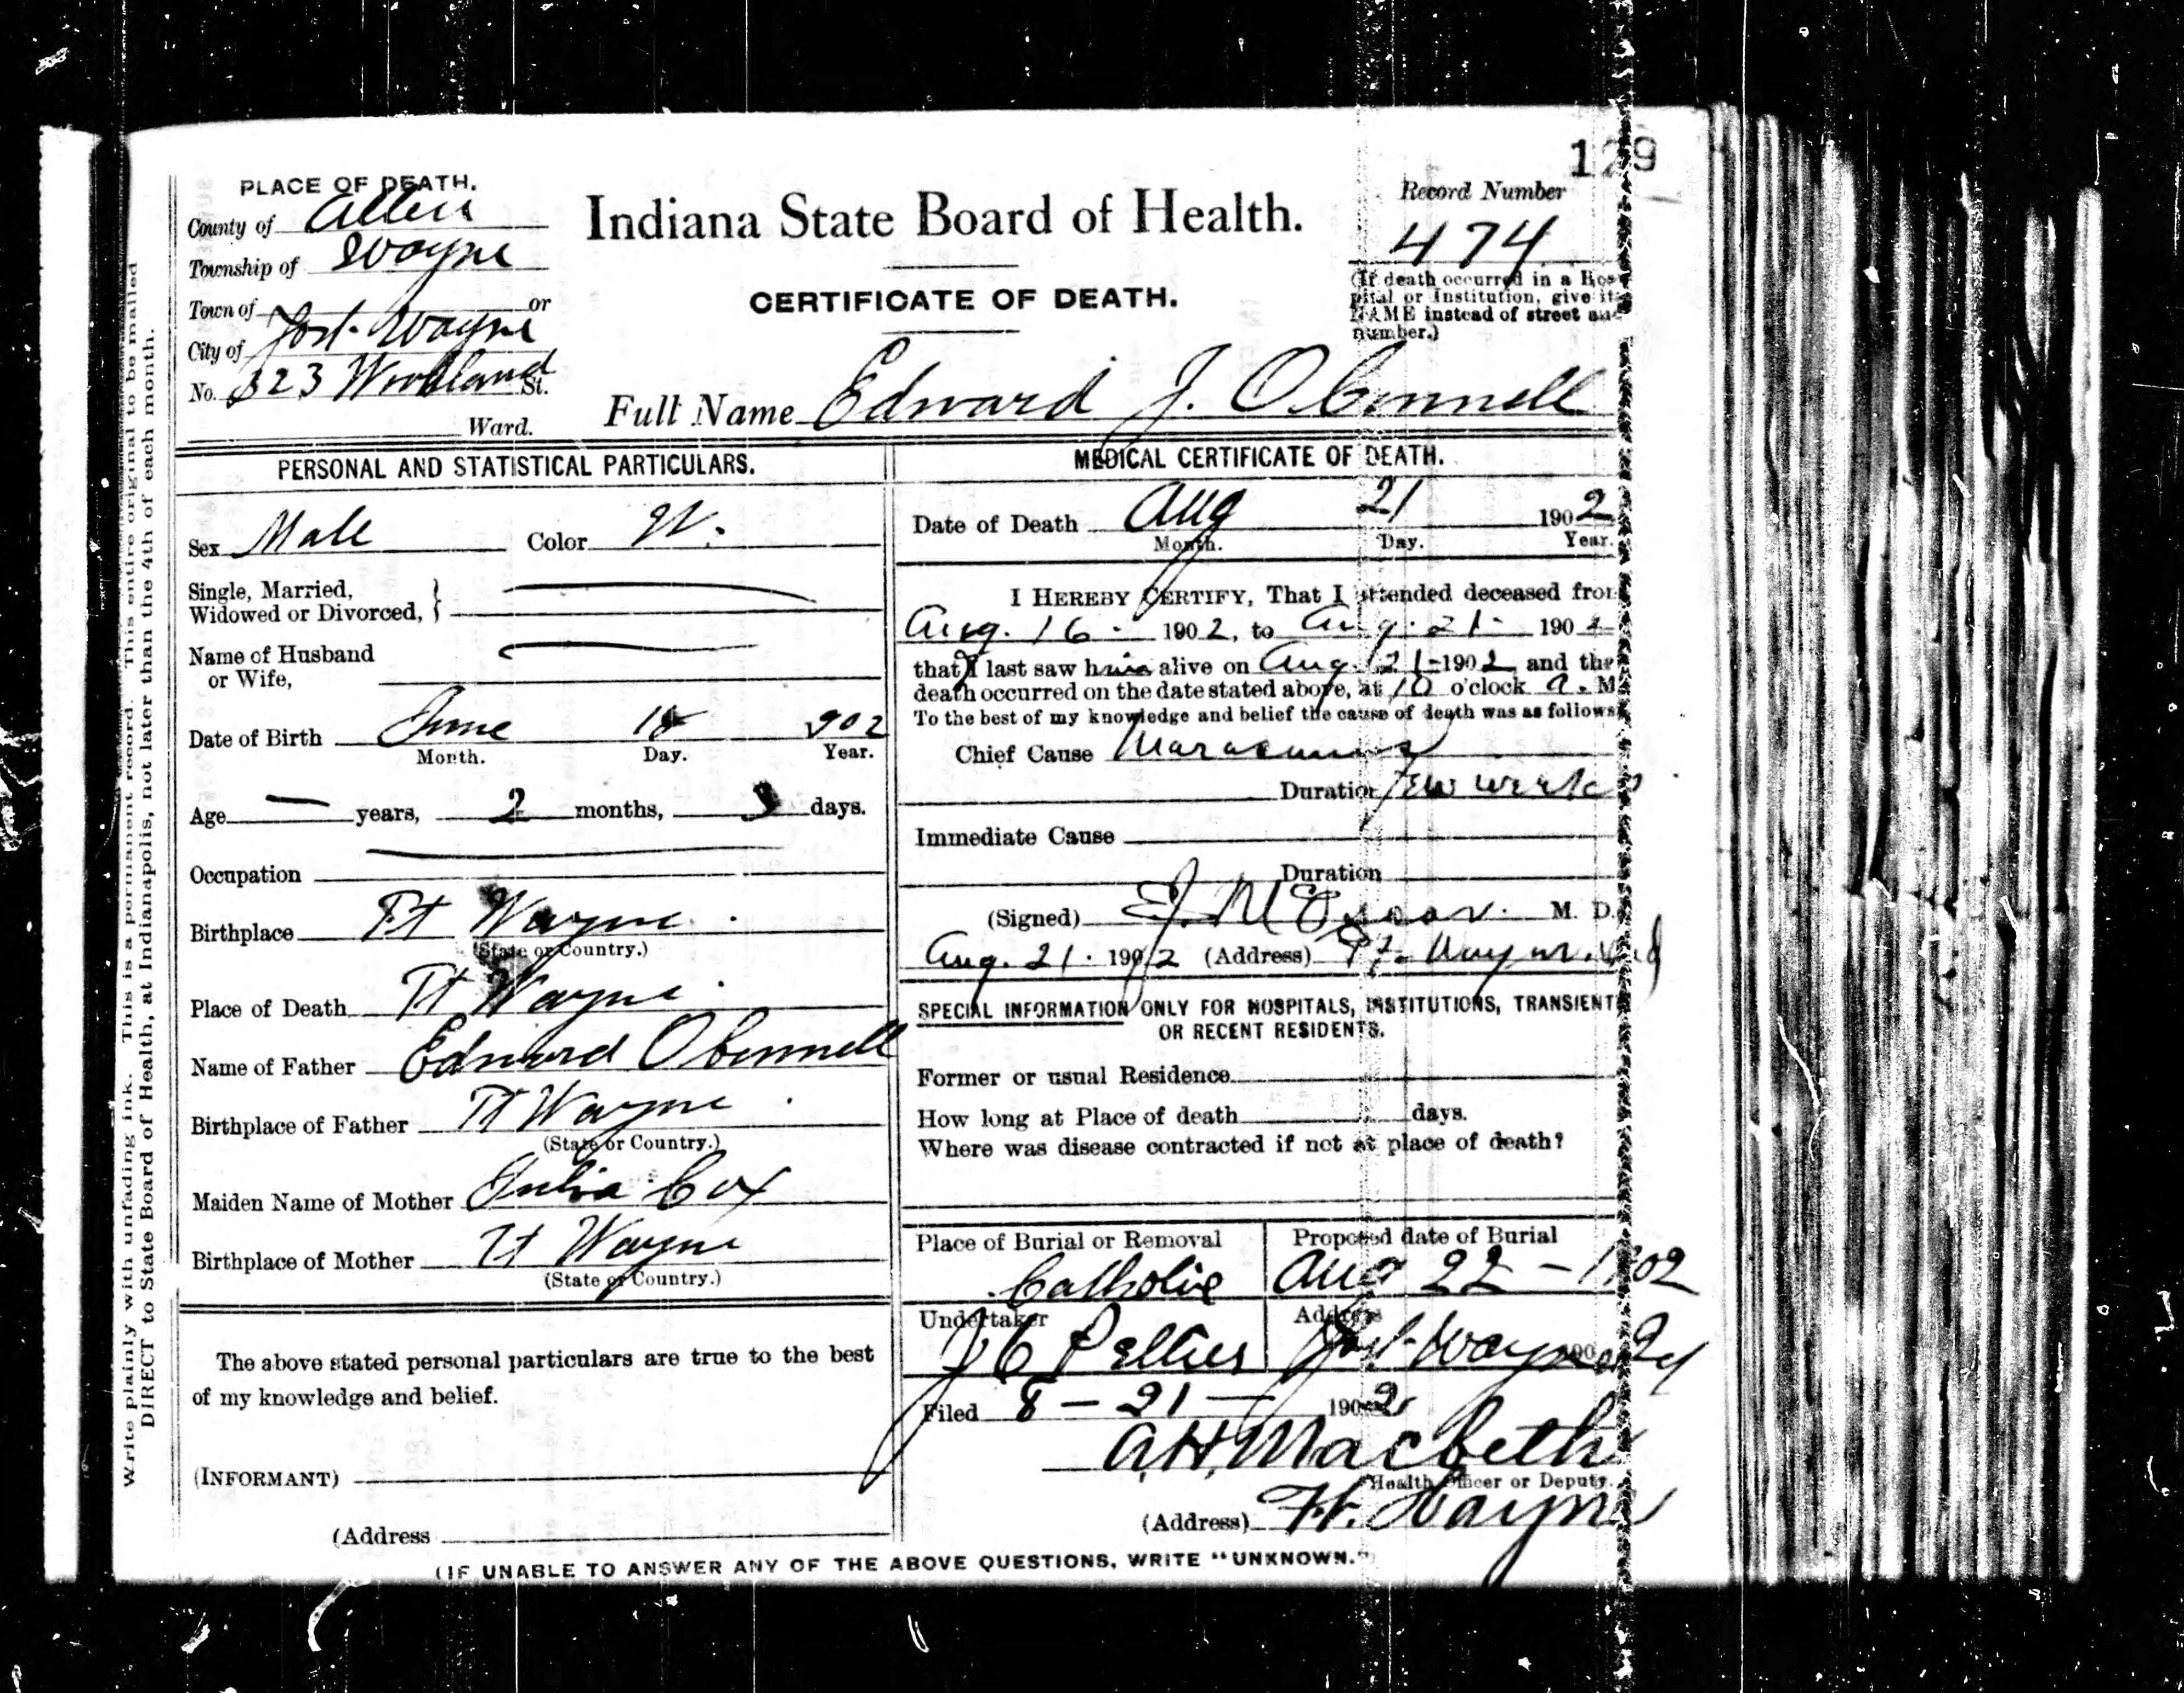 129
PLACE OF DEATH.
County of Allen
Township of Wayne
Town of or
City of Fort Wayne
No. 323 Woodland St.
Ward.
Indiana State Board of Health.
CERTIFICATE OF DEATH.
Record Number
474
(If death occurred in a Hos-
pital or Institution, give its
NAME instead of street and
number.)
Full Name Edward J. O'Connell
PERSONAL AND STATISTICAL PARTICULARS.
Sex Male Color W.
Single, Married,
Widowed or Divorced,
Name of Husband
or Wife,
Date of Birth June 18 1902
Month. Day. Year.
Age years, 2 months, 3 days.
Occupation
Birthplace Ft Wayne
(State or Country.)
Place of Death Ft Wayne
Name of Father Edward O'Connell
Birthplace of Father Ft Wayne
(State or Country.)
Maiden Name of Mother Julia Cox
Birthplace of Mother Ft Wayne
(State or Country.)
The above stated personal particulars are true to the best
of my knowledge and belief.
(INFORMANT)
(Address
MEDICAL CERTIFICATE OF DEATH.
Date of Death Aug 21 1902
Month. Day. Year.
I HEREBY CERTIFY, That I attended deceased from
Aug. 16 - 1902, to Aug. 21 - 1902
that I last saw him alive on Aug. 21 - 1902 and that
death occurred on the date stated above, at 10 o'clock a. M.
To the best of my knowledge and belief the cause of death was as follows
Chief Cause Marasmus
Duration few weeks
Immediate Cause
Duration
(Signed) M. D.
Aug. 21. 1902 (Address) Ft. Wayne. Ind
SPECIAL INFORMATION ONLY FOR HOSPITALS, INSTITUTIONS, TRANSIENTS
OR RECENT RESIDENTS.
Former or usual Residence
How long at Place of death days.
Where was disease contracted if not at place of death?
Place of Burial or Removal Proposed date of Burial
Catholic Aug 22 - 1902
Undertaker Address
J C Peltier Fort Wayne
Filed 8 - 21 - 1902
A.H. Macbeth
Health Officer or Deputy.
(Address) Ft. Wayne
(IF UNABLE TO ANSWER ANY OF THE ABOVE QUESTIONS, WRITE "UNKNOWN.")
Write plainly with unfading ink. This is a permanent record. This entire original to be mailed
DIRECT to State Board of Health, at Indianapolis, not later than the 4th of each month.